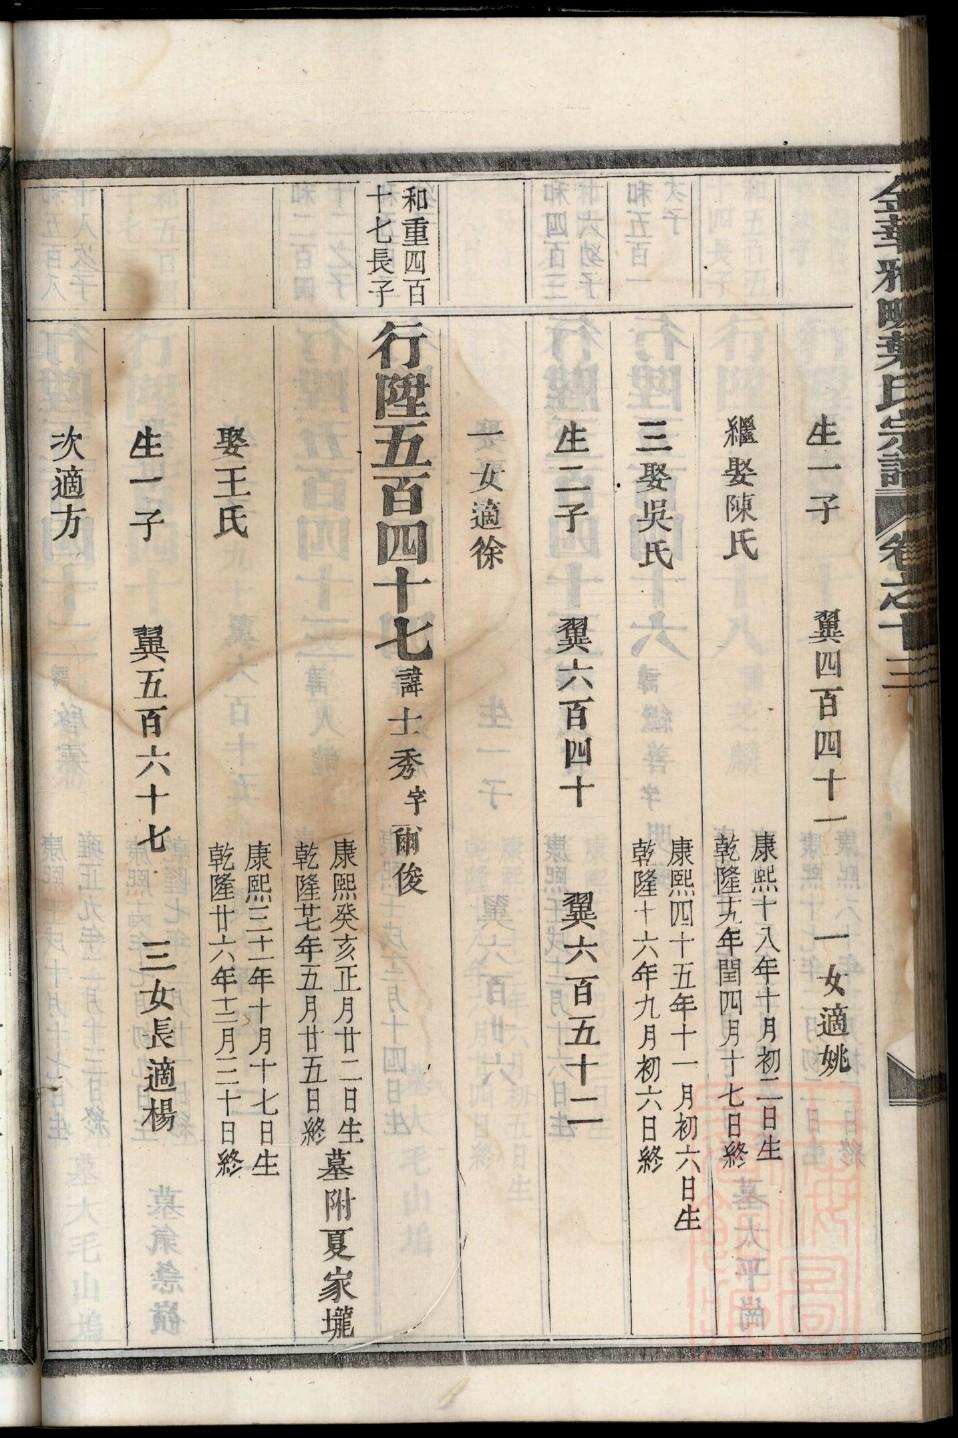 金華雅畈葉氏宗譜 卷之十三
生一子 翼四百四十一 一女適姚
繼娶陳氏 康熙十八年十月初二日生
乾隆廿九年閏四月十七日終
三娶吳氏 康熙四十五年十一月初六日生
乾隆十六年九月初六日終
生二子 翼六百四十 翼六百五十二
一女適徐
和重四百
十七長子
行陞五百四十七 諱士秀 字爾俊
康熙癸亥正月廿二日生
乾隆廿年五月廿五日終
墓附夏家壠
娶王氏 康熙三十一年十月十七日生
乾隆廿六年十二月二十日終
生一子 翼五百六十七 三女長適楊
次適方